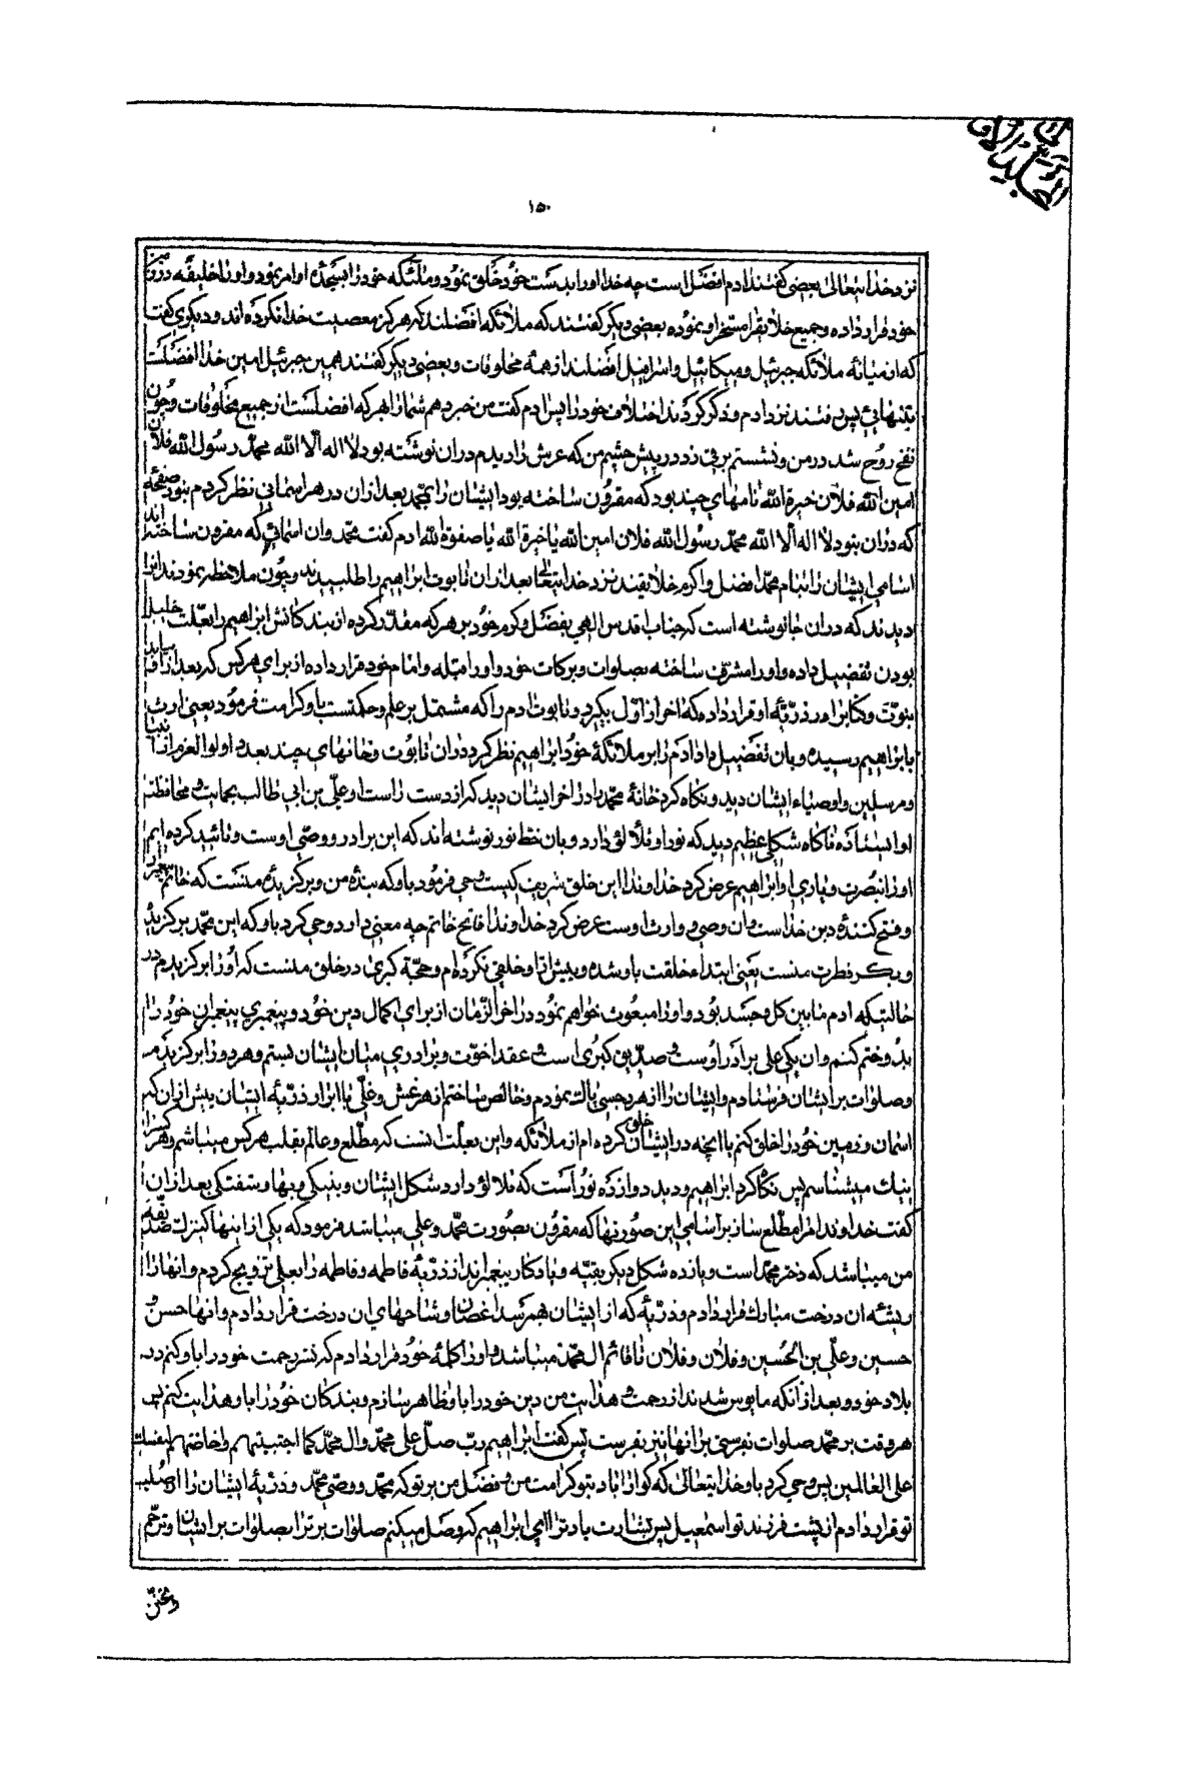 ١٥٠
نزد خدایتعالی بعضی گفتند ادم افضل است چه خدا اورا بدست خود خلق نمود و ملئکه خود را بسجده او امر نمود و اورا خلیفه در زمین
خود قرار داده و جمیع خلایق را مسخر او نموده بعضی دیگر گفتند که ملائکه افضلند که هرگز معصیت خدا نکرده اند و دیگری گفت
که از میانه ملائکه جبرئیل و میکائیل و اسرافیل افضلند از همه مخلوقات و بعضی دیگر گفتند همین جبرئیل امین خدا افضلست
بتنهائی پس رفتند نزد ادم و ذکر کردند اختلاف خود را پس ادم گفت من خبر دهم شما را بهر که افضلست از جمیع مخلوقات و چون
نفخ روح شد در من و نشستم برقی زد در پیش چشم من که عرش را دیدم دران نوشته بود لا اله الّا الله محمد رسول الله فلان
امین الله فلان خیرة الله نامهای چند بود که مقرون ساخته بود ایشان را بمحمد بعد ازان در هر اسمانی نظر کردم نبود صفحهٔ
که دران نبود لا اله الّا الله محمد رسول الله فلان امین الله یا خیرة الله یا صفوة الله ادم گفت محمد و ان اسمائی که مقرون ساخته اند
اسامی ایشان را بنام محمد افضل و اکرم خلایقند نزد خدایتعالی بعد ازان تابوت ابراهیم را طلبیدند و چون ملاحظه نمودند انرا
دیدند که دران جا نوشته است که جناب اقدس الهی بفضل و کرم خود بر هر که مقدّر کرده از بندکانش ابراهیم را بعلّت خلیل
بودن تفضیل داده و اورا مشرف ساخته بصلوات و برکات خود و اورا قبله و امام خود قرار داده از برای هر کس که بعد ازو بیاید
نبوّت و کتاب را در ذرّیّه او قرار داده که اخر از اوّل بگیرد و تابوت ادم را که مشتمل بر علم و حکمتست باو کرامت فرمود یعنی ارث
بابراهیم رسیده و بان تفضیل داد ادم را بر ملائکهٔ خود ابراهیم نظر کرد دران تابوت و خانهای چند بعدد اولوالعزم از انبیا
و مرسلین و اوصیاء ایشان دید و نکاه کرد خانهٔ محمد را در اخر ایشان دید که از دست راست او علی بن ابی طالب بحمایت و محافظت
او ایستاده ناکاه شکلی عظیم دید که نور او تلألؤ دارد و بان خط نور نوشته اند که این برادر و وصّی اوست و تائید کرده ایم
اورا بنصرت و یاری او ابراهیم عرض کرد خداوندا این خلق شریف کیست وحی فرمود باو که بندهٔ من و برگزیدهٔ منست که خاتم پیغمبران
و فتح کنندهٔ دین خداست و ان وصی و وارث اوست عرض کرد خداوندا فاتح خاتم چه معنی دارد وحی کرد باو که این محمد برگزیدهٔ
و بکر فطرت منست یعنی ابتداء خلقت باو شده و پیش ازو خلقی نکرده ام و حجّة کبریٰ در خلق منست که اورا برگزیدم در
حالتیکه ادم مابین کل و جسد بود و اورا مبعوث خواهم نمود در اخر الزّمان از برای اکمال دین خود و پیغمبری پیغمبران خود را
بدو ختم کنم و ان یکی علی برادر اوست و صدّیق کبری است و عقد اخوّت و برادری میان ایشان بستم و هر دو را برگزیدم
و صلوات بر ایشان فرستادم و ایشان را از هر رجسی پاک نمودم و خالص ساختم از هر غش و غلّی با ابرار ذرّیّه ایشان پیش ازان که
اسمان و زمین خود را خلق کنم با انچه در ایشان خلق کرده ام از ملائکه و این بعلّت انست که مطّلع و عالم بقلب هر کس میباشم و هر کس را
نیک میشناسم پس نگاه کرد ابراهیم و دید دوازده نور است که تلالؤ دارد شکل ایشان و بنیکی و بها و شفتکی بعد ازان
گفت خداوندا مرا مطّلع ساز بر اسامی این صورتها که مقرون بصورت محمّد و علی میباشد فرمود که یکی از اینها کنیزک صدّیقه
من میباشد که دختر محمّد است و یازده شکل دیکر بقیّه و یادکار پیغمبراند از ذرّیّهٔ فاطمه و فاطمه را بعلی تزویج کردم و انها را
ریشهٔ ان درخت مبارک قرار دادم و ذرّیّهٔ که از ایشان بهمرسد اغصان و شاخهای ان درخت قرار دادم و انها حسن و
حسین و علّی بن الحُسین و فلان و فلان تا قائم ال محمّد میباشد و اورا کلمهٔ خود قرار دادم که نشر رحمت خود را باو کنم در
بلاد خود و بعد از انکه مایوس شدند از رحمت و هدایت من دین خود را باو ظاهر سازم و بندکان خود را باو هدایت کنم پس
هر وقت بر محمّد صلوات بفرستی بر انها نیز بفرست پس گفت ابراهیم ربّ صلّ علی محمّد و ال محمّد کما اجتبیتهم و اخلصتهم لنفسک
علی العالمین پس وحی کرد باو خدایتعالی که گوارا باد بتو کرامت من و فضل من بر تو که محمّد و وصّی محمّد و ذرّیّهٔ ایشان را از صُلب
تو قرار دادم از پشت فرزند تو اسمعیل پس بشارت باد ترا ای ابراهیم که وصل میکنم صلوات بر ترا بصلوات بر ایشان و ترحّم
و تحنّن